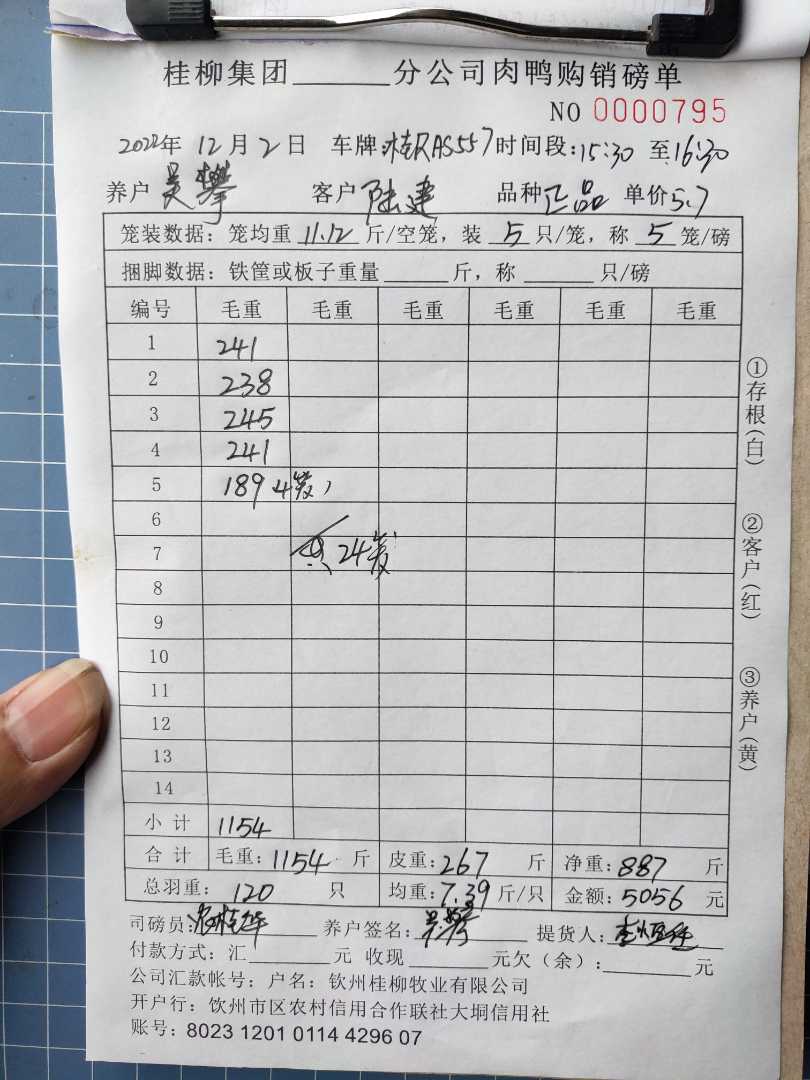 桂柳集团______分公司肉鸭购销磅单
NO 0000795
2022年 12月2日 车牌:桂RAS557 时间段:15:30 至16:30
养户 吴攀 客户 陆建 品种 正品 单价5.7
笼装数据: 笼均重 11.12 斤/空笼, 装 5 只/笼, 称 5 笼/磅
捆脚数据: 铁筐或板子重量______斤, 称______只/磅
编号 毛重 毛重 毛重 毛重 毛重 毛重
1 241
2 238
3 245
4 241
5 189 (4笼)
6
7 共24笼
8
9
10
11
12
13
14
小计 1154
合计 毛重: 1154 斤 皮重: 267 斤 净重: 887 斤
总羽重: 120 只 均重: 7.39 斤/只 金额: 5056 元
司磅员: 养户签名: 吴攀 提货人:
付款方式: 汇______元 收现______元欠(余):______元
公司汇款帐号: 户名: 钦州桂柳牧业有限公司
开户行: 钦州市区农村信用合作联社大垌信用社
账号: 8023 1201 0114 4296 07
①存根(白)
②客户(红)
③养户(黄)